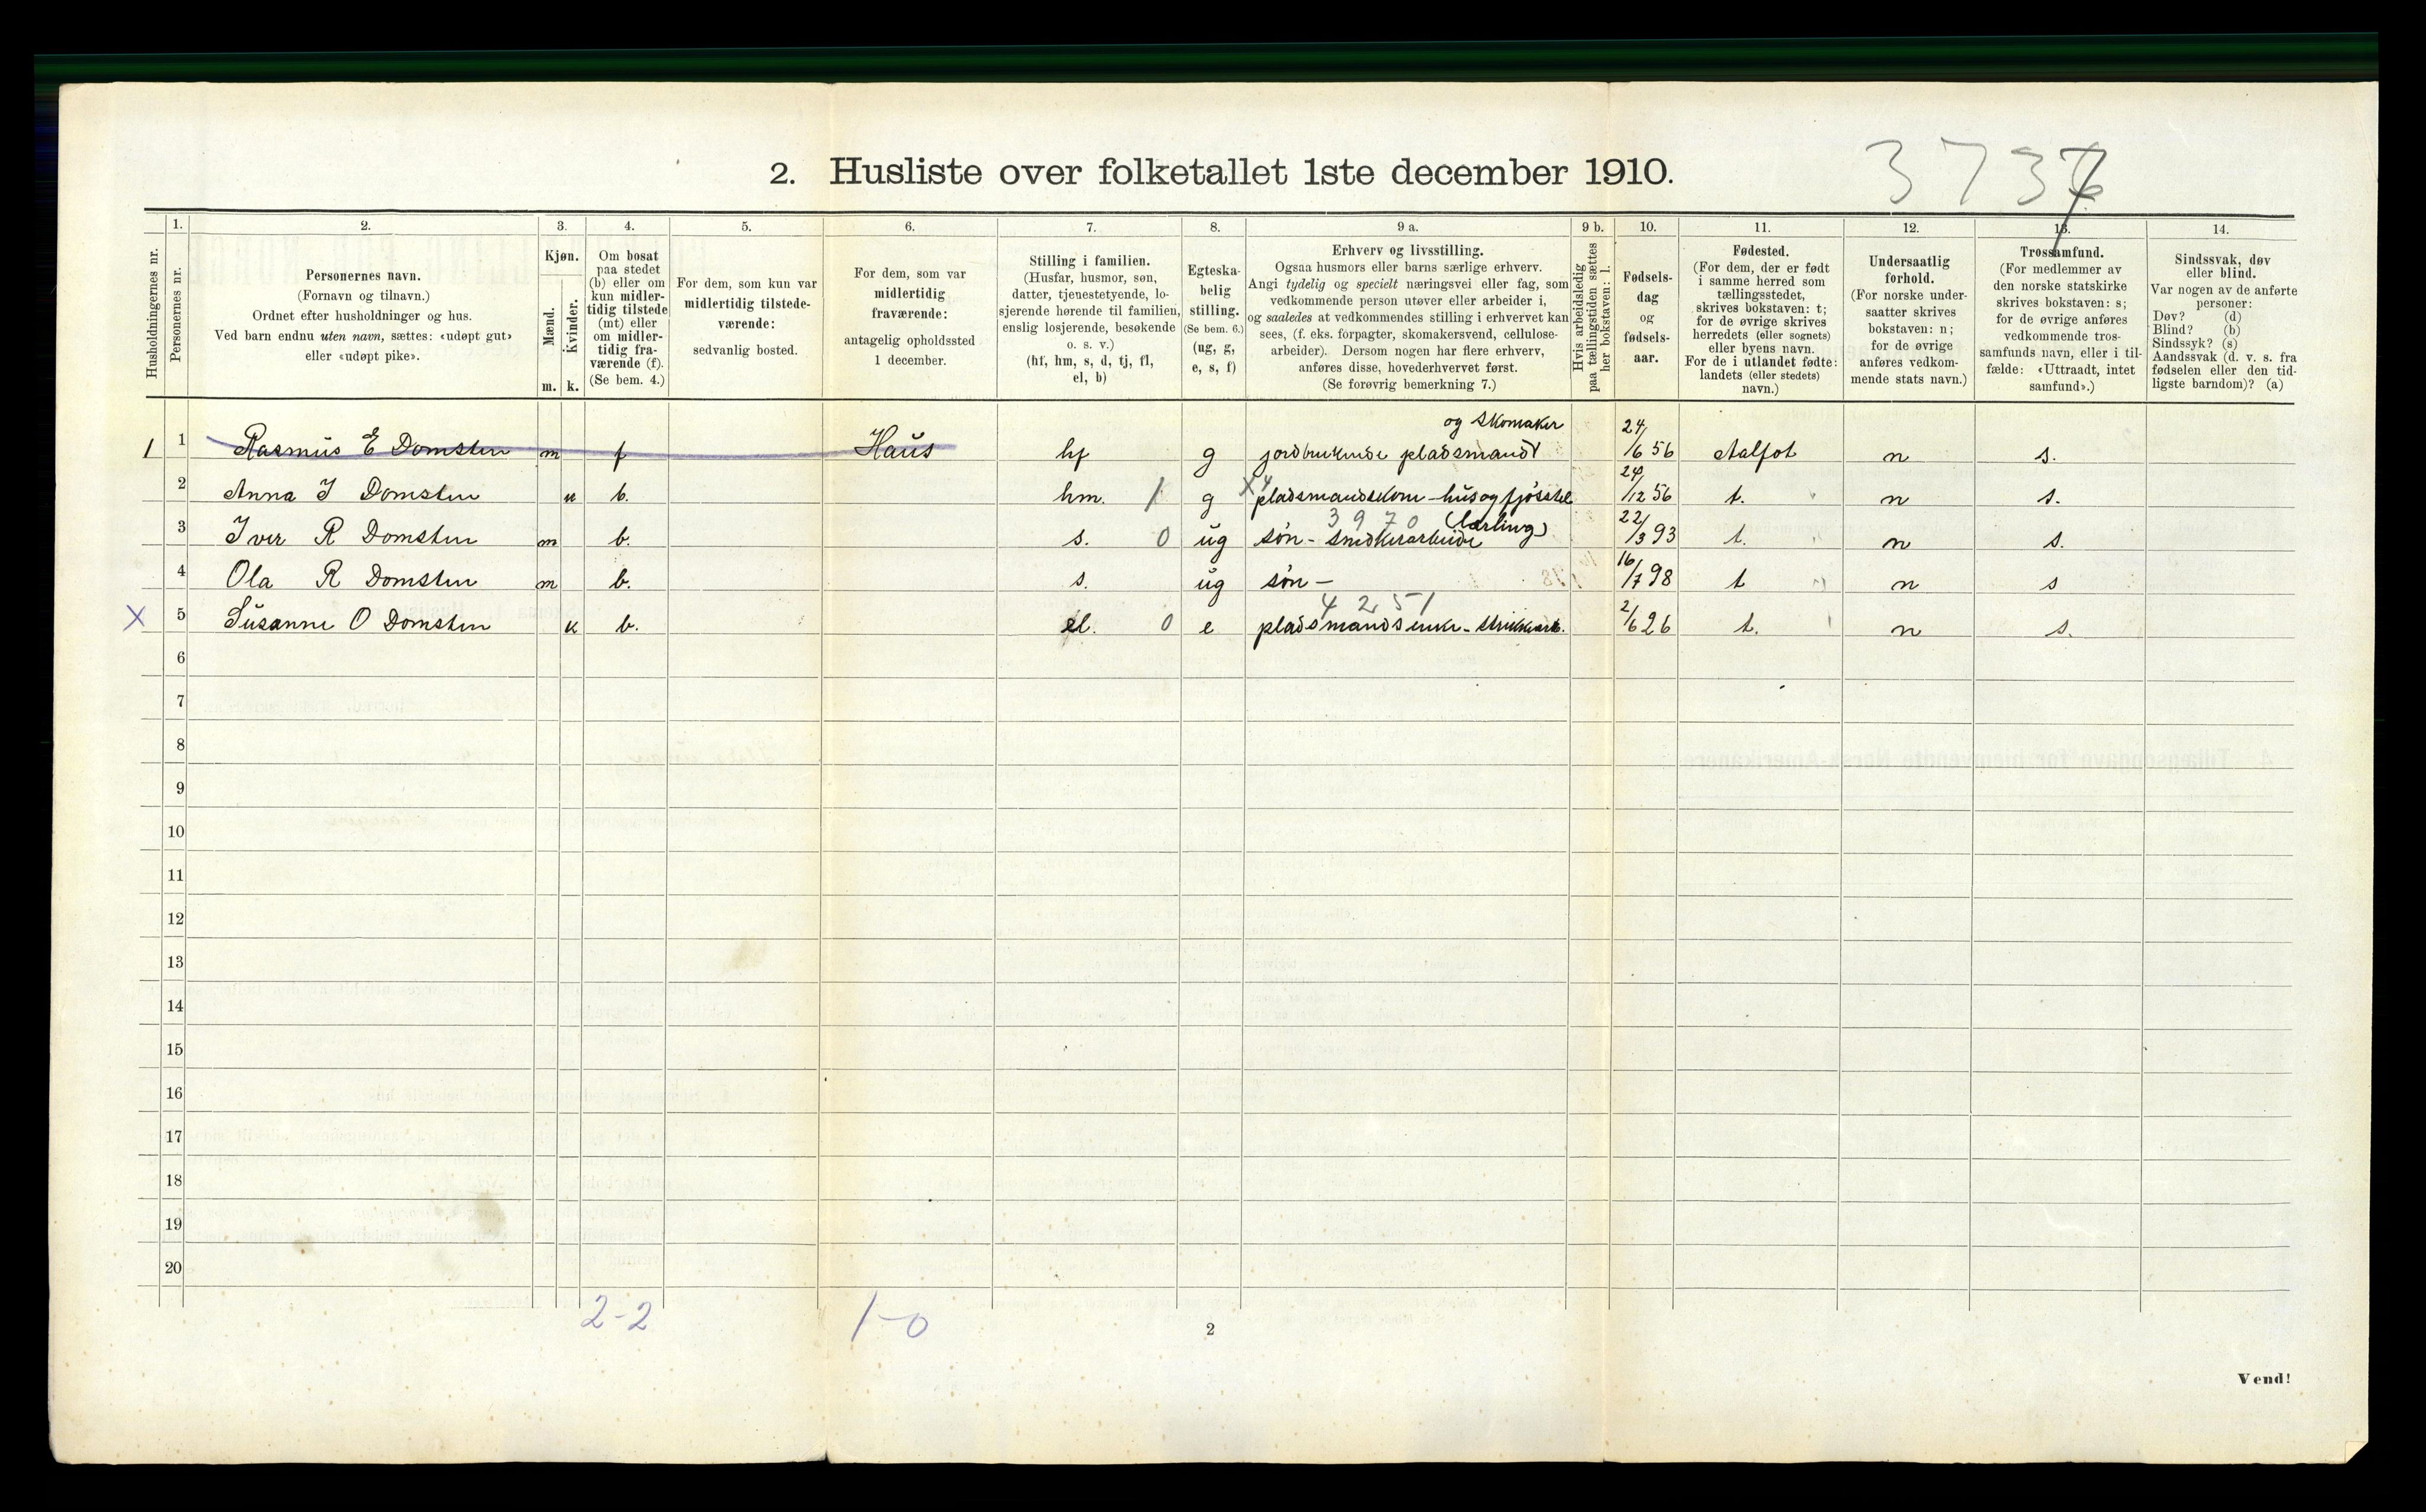 2. Husliste over folketallet 1ste december 1910.
3737
Husholdningernes nr.
1.
Personernes nr.
2.
Personernes navn.
(Fornavn og tilnavn.)
Ordnet efter husholdninger og hus.
Ved barn endnu uten navn, sættes: «udøpt gut»
eller «udøpt pike».
3.
Kjøn.
Mænd.
Kvinder.
m. k.
4.
Om bosat
paa stedet
(b) eller om
kun midler-
tidig tilstede
(mt) eller
om midler-
tidig fra-
værende (f).
(Se bem. 4.)
5.
For dem, som kun var
midlertidig tilstede-
værende:
sedvanlig bosted.
6.
For dem, som var
midlertidig
fraværende:
antagelig opholdssted
1 december.
7.
Stilling i familien.
(Husfar, husmor, søn,
datter, tjenestetyende, lo-
sjerende hørende til familien,
enslig losjerende, besøkende
o. s. v.)
(hf, hm, s, d, tj, fl,
el, b)
8.
Egteska-
belig
stilling.
(Se bem. 6.)
(ug, g,
e, s, f)
9 a.
Erhverv og livsstilling.
Ogsaa husmors eller barns særlige erhverv.
Angi tydelig og specielt næringsvei eller fag, som
vedkommende person utøver eller arbeider i,
og saaledes at vedkommendes stilling i erhvervet kan
sees, (f. eks. forpagter, skomakersvend, cellulose-
arbeider). Dersom nogen har flere erhverv,
anføres disse, hovederhvervet først.
(Se forøvrig bemerkning 7.)
9 b.
Hvis arbeidsledig
paa tællingstiden sættes
her bokstaven: l.
10.
Fødsels-
dag
og
fødsels-
aar.
11.
Fødested.
(For dem, der er født
i samme herred som
tællingsstedet,
skrives bokstaven: t;
for de øvrige skrives
herredets (eller sognets)
eller byens navn.
For de i utlandet fødte:
landets (eller stedets)
navn.)
12.
Undersaatlig
forhold.
(For norske under-
saatter skrives
bokstaven: n;
for de øvrige
anføres vedkom-
mende stats navn.)
13.
Trossamfund.
(For medlemmer av
den norske statskirke
skrives bokstaven: s;
for de øvrige anføres
vedkommende tros-
samfunds navn, eller i til-
fælde: «Uttraadt, intet
samfund».)
14.
Sindssvak, døv
eller blind.
Var nogen av de anførte
personer:
Døv? (d)
Blind? (b)
Sindssyk? (s)
Aandssvak (d. v. s. fra
fødselen eller den tid-
ligste barndom)? (a)
og Skomaker
1 1 Rasmus E Domsten m f Haus hf g jordbrukende pladsmand 24/6 56 Aalfot n s.
2 Anna I Domsten k b. hm. 1 g X4 pladsmandskone - hus og fjøsstel 24/12 56 t. n s.
3970 (lærling)
3 Iver R Domsten m b. s. 0 ug søn - 22/3 93 t. n s.
4 Ola R Domsten m b. s. ug søn - 16/7 98 t n s
4251
X 5 Susanne O Domsten k b. el. 0 e pladsmandsenke - 2/6 26 t. n s.
6
7
8
9
10
11
12
13
14
15
16
17
18
19
20
2-2 1-0
2
Vend!